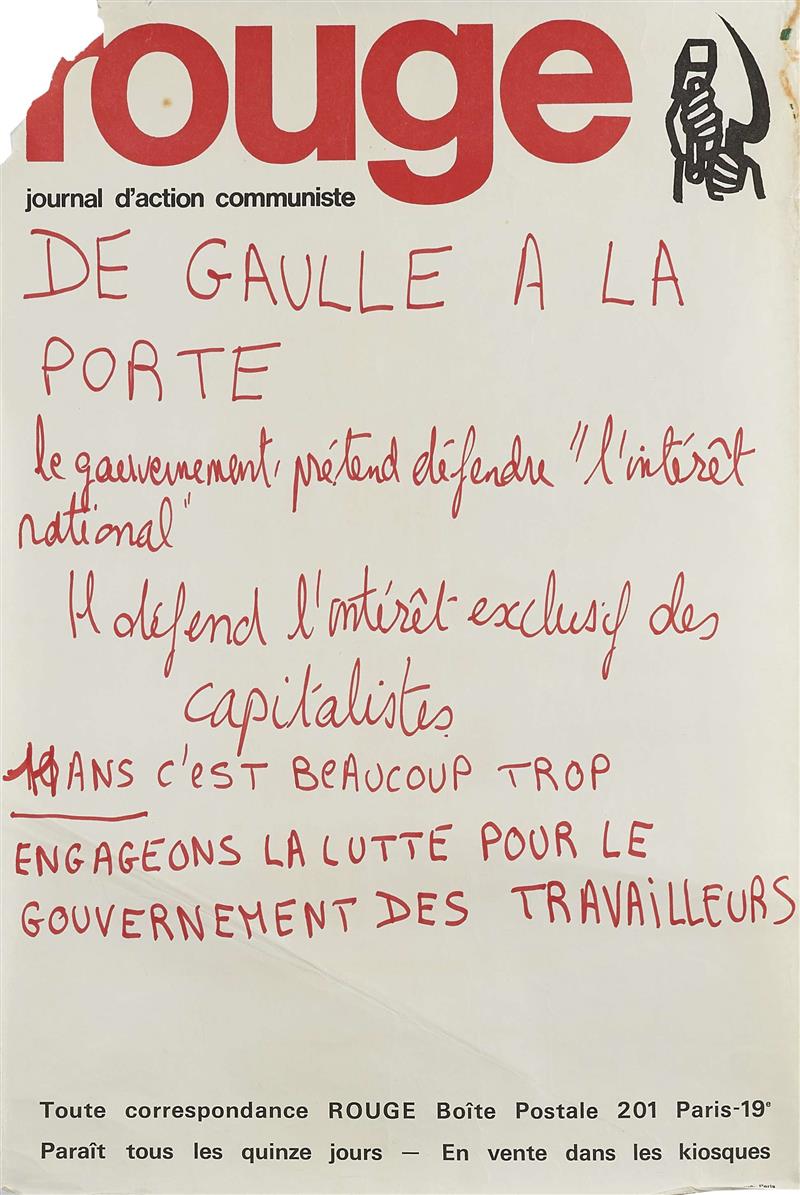 rouge
journal d'action communiste
DE GAULLE A LA
PORTE
le gouvernement prétend défendre "l'intérêt
national"
Il défend l'intérêt exclusif des
capitalistes
ANS C'EST BEAUCOUP TROP
ENGAGEONS LA LUTTE POUR LE
GOUVERNEMENT DES TRAVAILLEURS
Toute correspondance ROUGE Boîte Postale 201 Paris-19e
Paraît tous les quinze jours — En vente dans les kiosques